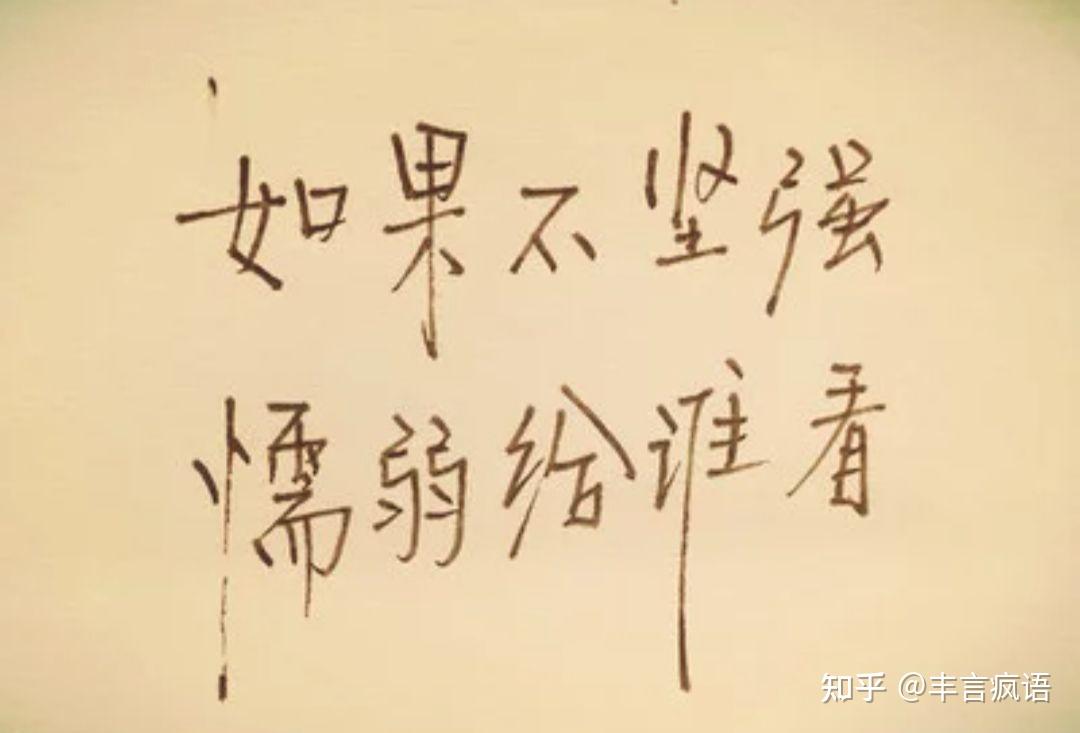 如果不坚强
懦弱给谁看
知乎 @丰言疯语